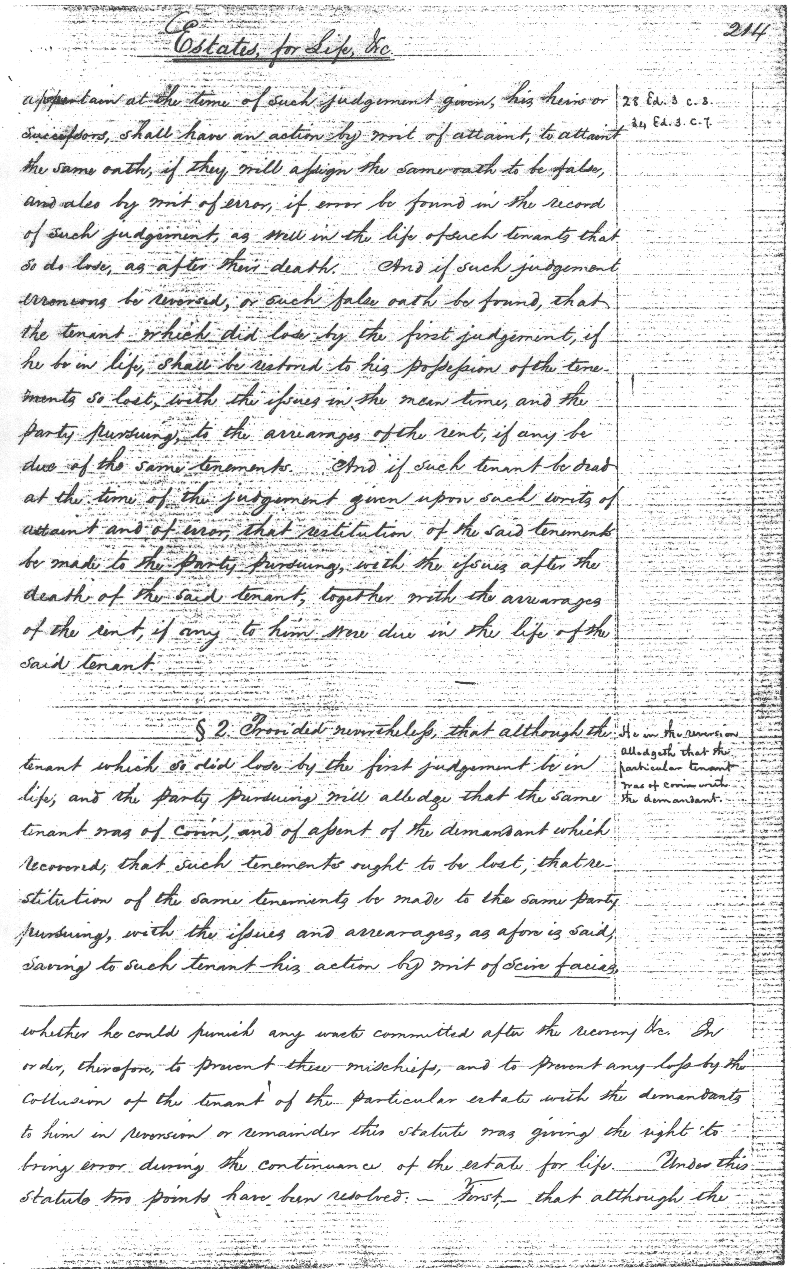 Estates, for Life, &c.
214
appertain at the time of such judgement given, his heirs or
successors, shall have an action by writ of attaint, to attaint
the same oath, if they will assign the same oath to be false,
and also by writ of error, if error be found in the record
of such judgement, as well in the life of such tenants that
so do lose, as after their death. And if such judgement
erroneous be reversed, or such false oath be found, that
the tenant which did lose by the first judgement, if
he be in life, shall be restored to his possession of the tene-
ments so lost, with the issues in the mean time, and the
party pursuing, to the arrearages of the rent, if any be
due of the same tenements. And if such tenant be dead
at the time of the judgement given upon such writs of
attaint and of error, that restitution of the said tenements
be made to the Party pursuing, with the issues after the
death of the said tenant, together with the arrearages
of the rent, if any to him were due in the life of the
said tenant
28 Ed. 3 c. 8.
34 Ed. 3. c. 7.
§ 2. Provided nevertheless, that although the
tenant which so did lose by the first judgement be in
life, and the party pursuing will alledge that the same
tenant was of covin, and of assent of the demandant which
recovered, that such tenements ought to be lost, that re-
stitution of the same tenements be made to the same party
pursuing, with the issues and arrearages, as afore is said,
saving to such tenant his action by writ of scire facias,
He in the reversion
alledgeth that the
particular tenant
was of covin with
the demandant.
whether he could punish any waste committed after the recovery &c. In
order, therefore, to prevent these mischiefs, and to prevent any loss by the
collusion of the tenant of the particular estate with the demandants
to him in reversion or remainder this statute was giving the right to
bring error during the continuance of the estate for life. Under this
statute two points have been resolved: — First, — that although the